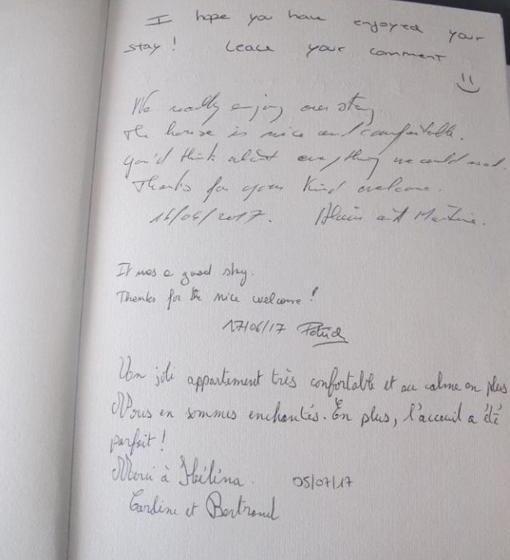 I hope you have enjoyed your
stay! Leace your comment
We really enjoy our stay
The house is nice and comfortable.
you'd think about everything we could need.
Thanks for your kind welcome.
16/06/2017. Alain and Martine.
It was a good stay.
Thanks for the nice welcome!
17/06/17
Un joli appartement très confortable et au calme en plus
Nous en sommes enchantés. En plus, l'acceuil a été
parfait!
Merci à Héléna. 05/07/17
et Bertrand